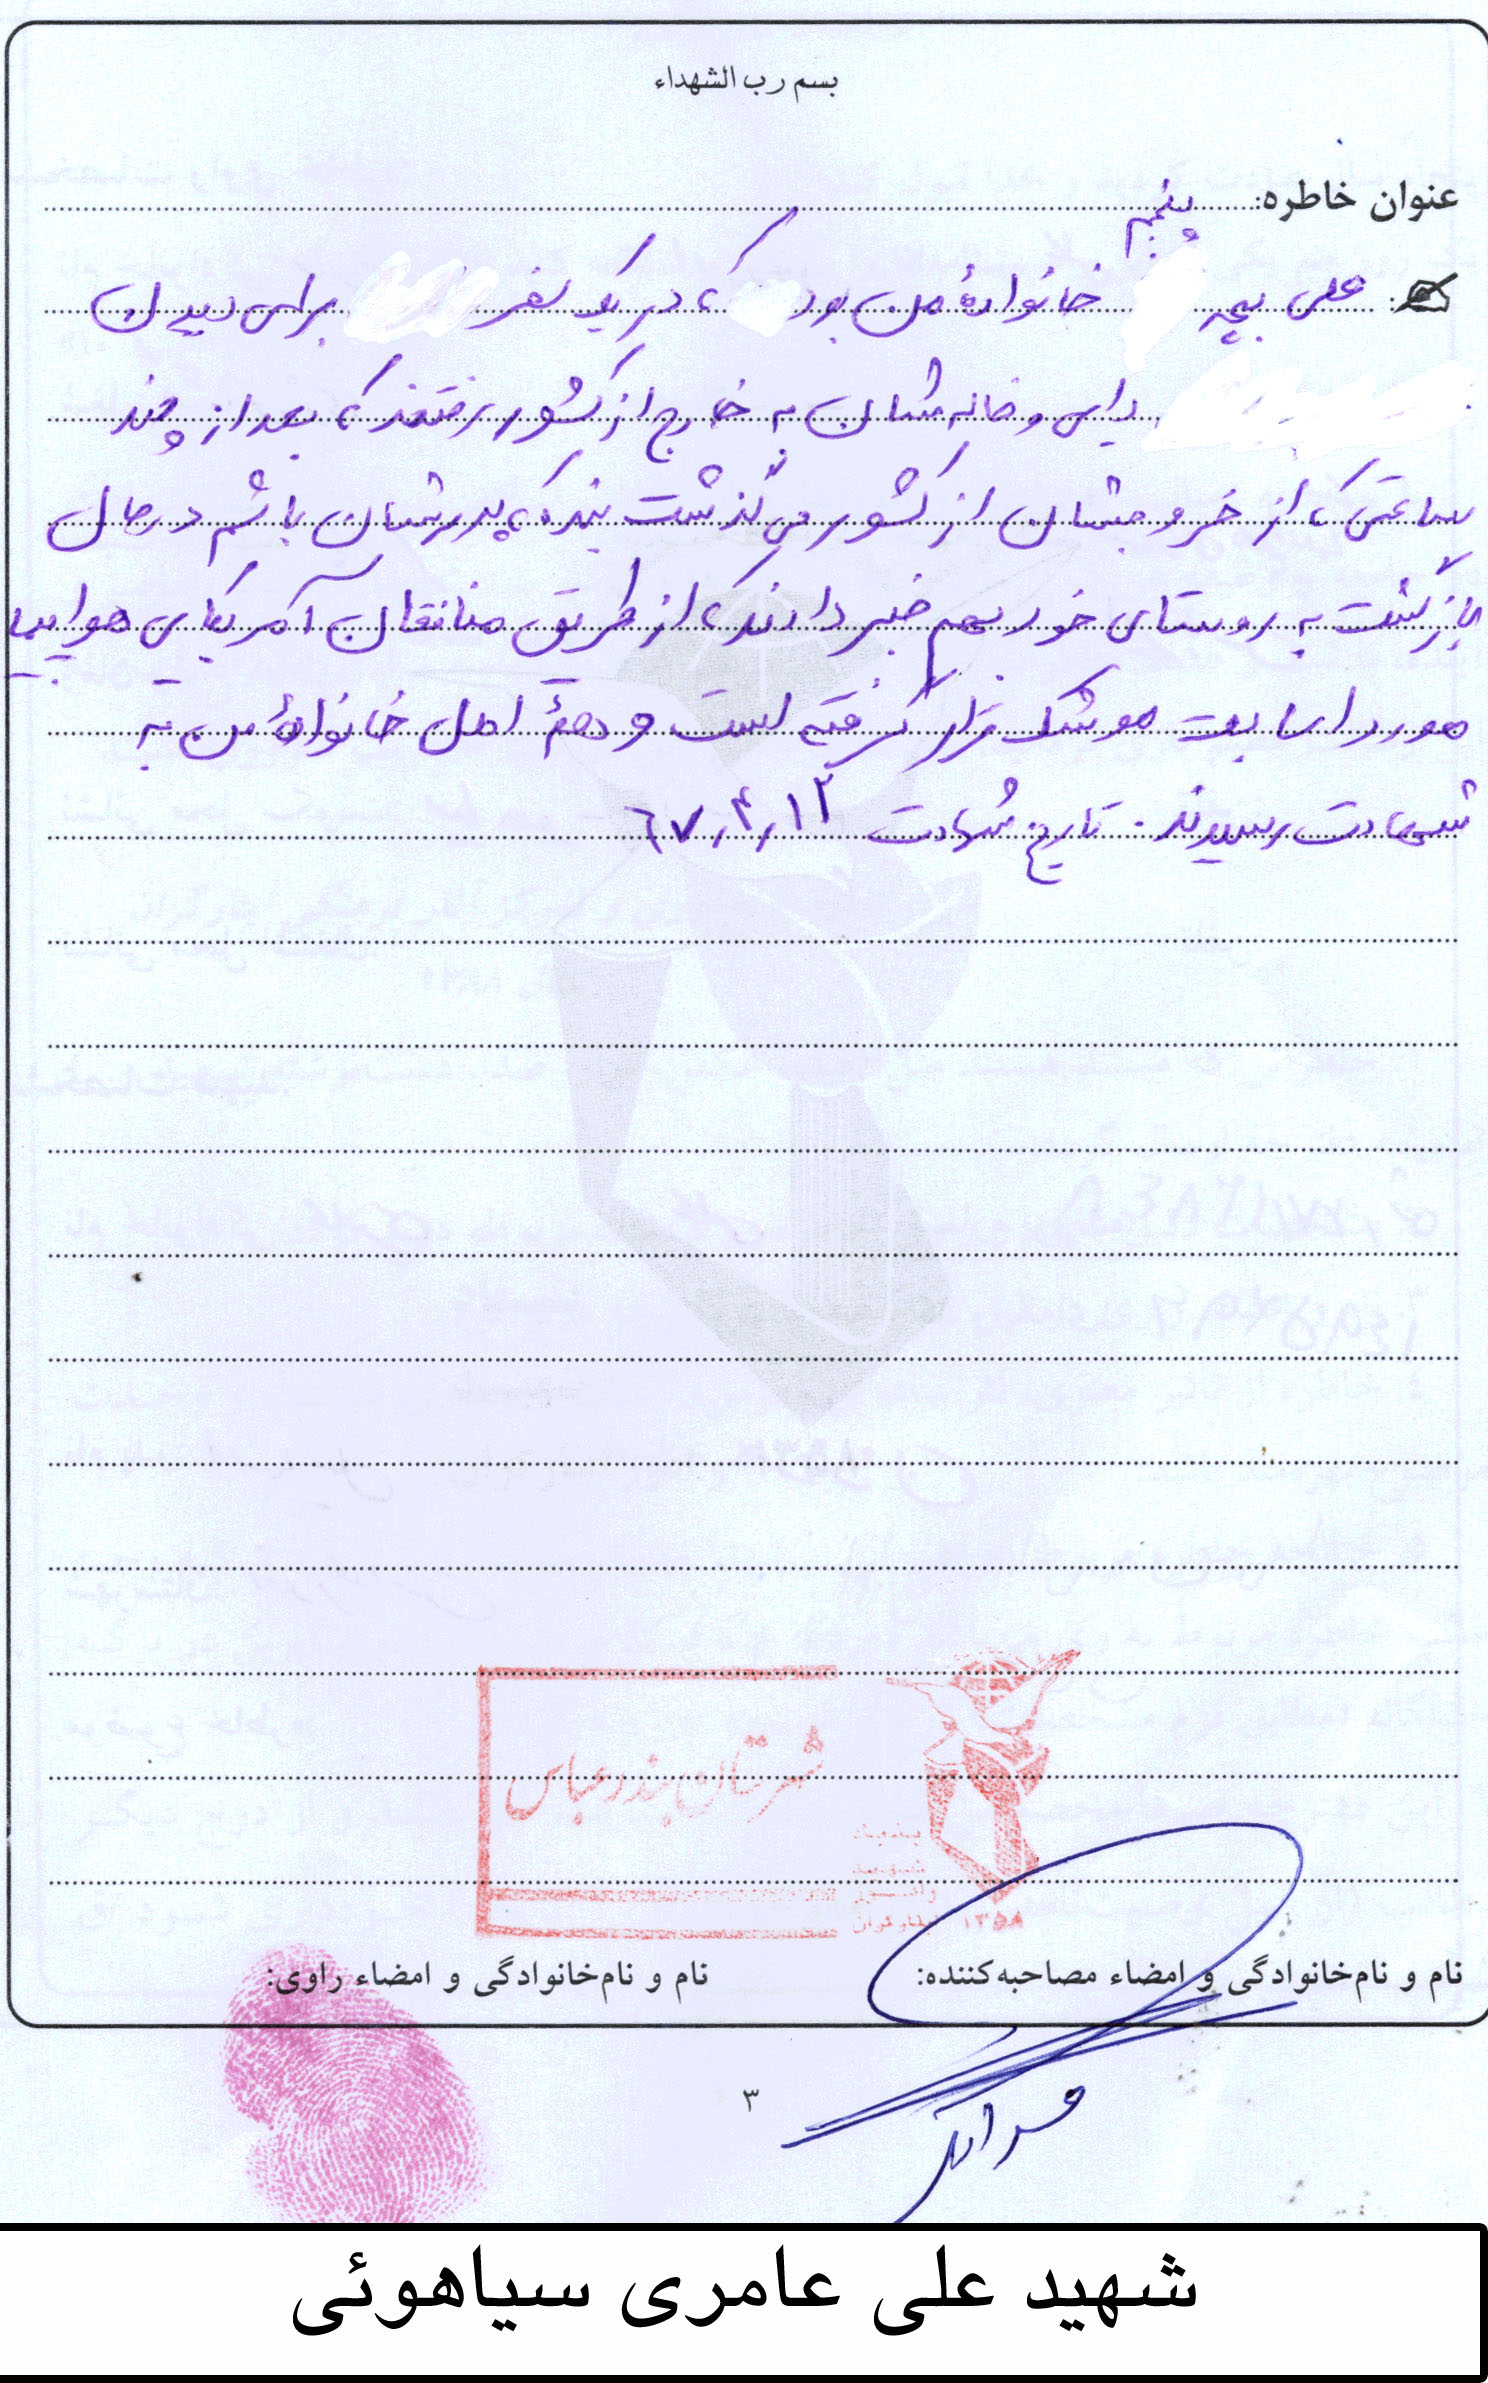 بسم رب الشهداء
عنوان خاطره:
پنجم
علی بچه خانوادهٔ من بود که در یک سفر برای دیدن
دایی و خاله شان به خارج از کشور رفتند که بعد از چند
ساعتی که از خروجشان از کشور می گذشت بنده که پدرشان باشم در حال
بازگشت به روستای خود بودم خبر دادند که از طریق منافقان آمریکایی هواپیما
مورد اصابت موشک قرار گرفته است و همهٔ اهل خانوادهٔ من به
شهادت رسیدند. تاریخ شهادت ۶۷,۴,۱۲
شهرستان بندرعباس
بنیاد
شهید
و امور
ایثارگران
۱۳۵۸
نام و نام‌خانوادگی و امضاء مصاحبه‌کننده:
نام و نام‌خانوادگی و امضاء راوی:
۳
شهید علی عامری سیاهوئی